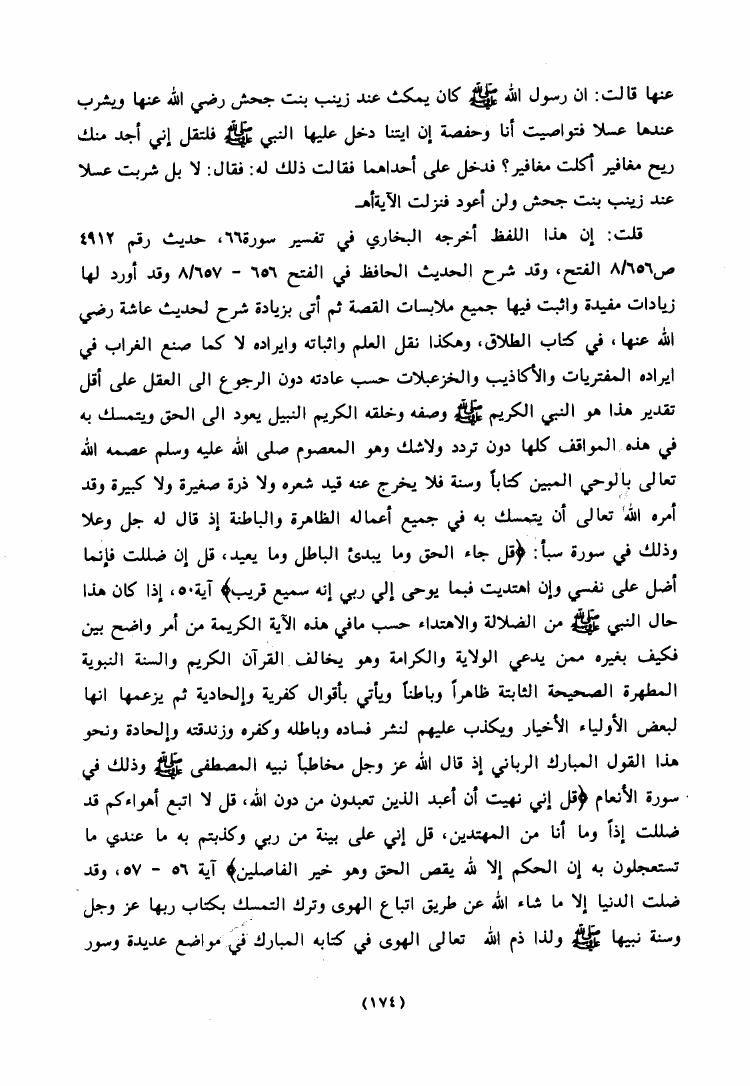 عنها قالت: ان رسول الله ﷺ كان يمكث عند زينب بنت جحش رضي الله عنها ويشرب
عندها عسلا فتواصيت أنا وحفصة إن ايتنا دخل عليها النبي ﷺ فلتقل إني أجد منك
ريح مغافير أكلت مغافير؟ فدخل على أحداهما فقالت ذلك له: فقال: لا بل شربت عسلا
عند زينب بنت جحش ولن أعود فنزلت الآيةأهـ
قلت: إن هذا اللفظ أخرجه البخاري في تفسير سورة٦٦، حديث رقم ٤٩١٢
ص٨/٦٥٦ الفتح، وقد شرح الحديث الحافظ في الفتح ٦٥٦ - ٨/٦٥٧ وقد أورد لها
زيادات مفيدة واثبت فيها جميع ملابسات القصة ثم أتى بزيادة شرح لحديث عاشة رضي
الله عنها، في كتاب الطلاق، وهكذا نقل العلم واثباته وايراده لا كما صنع الغراب في
ايراده المفتريات والأكاذيب والخزعبلات حسب عادته دون الرجوع الى العقل على أقل
تقدير هذا هو النبي الكريم ﷺ وصفه وخلقه الكريم النبيل يعود الى الحق ويتمسك به
في هذه المواقف كلها دون تردد ولاشك وهو المعصوم صلى الله عليه وسلم عصمه الله
تعالى بالوحي المبين كتاباً وسنة فلا يخرج عنه قيد شعره ولا ذرة صغيرة ولا كبيرة وقد
أمره الله تعالى أن يتمسك به في جميع أعماله الظاهرة والباطنة إذ قال له جل وعلا
وذلك في سورة سبأ: ﴿قل جاء الحق وما يبدئ الباطل وما يعيد، قل إن ضللت فإنما
أضل على نفسي وإن اهتديت فبما يوحى إلي ربي إنه سميع قريب﴾ آية٥٠، إذا كان هذا
حال النبي ﷺ من الضلالة والاهتداء حسب مافي هذه الآية الكريمة من أمر واضح بين
فكيف بغيره ممن يدعي الولاية والكرامة وهو يخالف القرآن الكريم والسنة النبوية
المطهرة الصحيحة الثابتة ظاهراً وباطناً ويأتي بأقوال كفرية وإلحادية ثم يزعمها انها
لبعض الأولياء الأخيار ويكذب عليهم لنشر فساده وباطله وكفره وزندقته وإلحادة ونحو
هذا القول المبارك الرباني إذ قال الله عز وجل مخاطباً نبيه المصطفى ﷺ وذلك في
سورة الأنعام ﴿قل إني نهيت أن أعبد الذين تعبدون من دون الله، قل لا اتبع أهواءكم قد
ضللت إذاً وما أنا من المهتدين، قل إني على بينة من ربي وكذبتم به ما عندي ما
تستعجلون به إن الحكم إلا لله يقص الحق وهو خير الفاصلين﴾ آية ٥٦ - ٥٧، وقد
ضلت الدنيا إلا ما شاء الله عن طريق اتباع الهوى وترك التمسك بكتاب ربها عز وجل
وسنة نبيها ﷺ ولذا ذم الله تعالى الهوى في كتابه المبارك في مواضع عديدة وسور
(١٧٤)